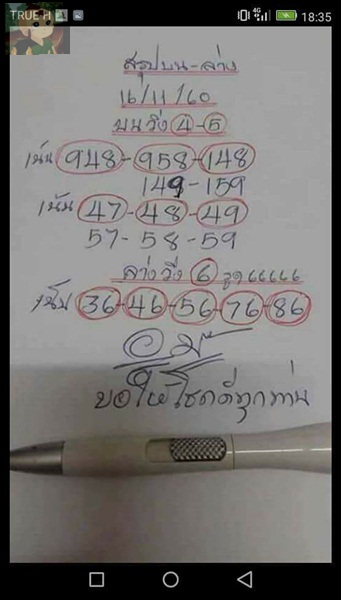 TRUE-H 4G 18:35
สรุปบน-ล่าง
16/11/60
บนวิ่ง 4-5
เน้น 948-958-148
149-159
เน้น 47-48-49
57-58-59
ล่างวิ่ง 6 รูด 66666
เน้น 36-46-56-76-86
ขอให้โชคดีทุกท่าน